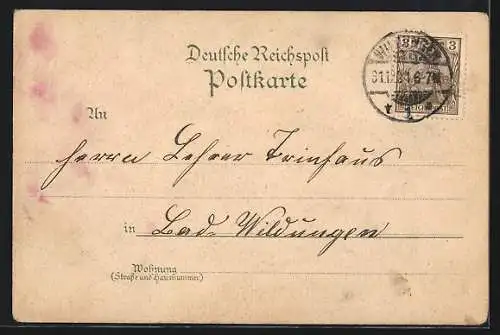 Deutsche Reichspost
Postkarte
3
3
An
Herrn Lehrer Trinhaus
in Bad-Wildungen
Wohnung
(Straße und Hausnummer)